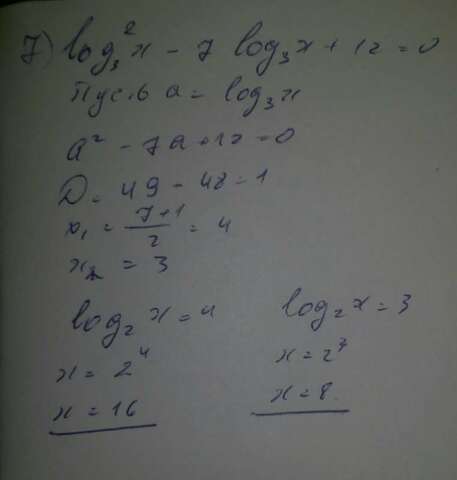 7) log₃²x - 7 log₃x + 12 = 0
Пусть a = log₃x
a² - 7a + 12 = 0
D = 49 - 48 = 1
x₁ = (7+1)/2 = 4
x₂ = 3
log₂ x = 4 log₂ x = 3
x = 2⁴ x = 2³
x = 16 x = 8.